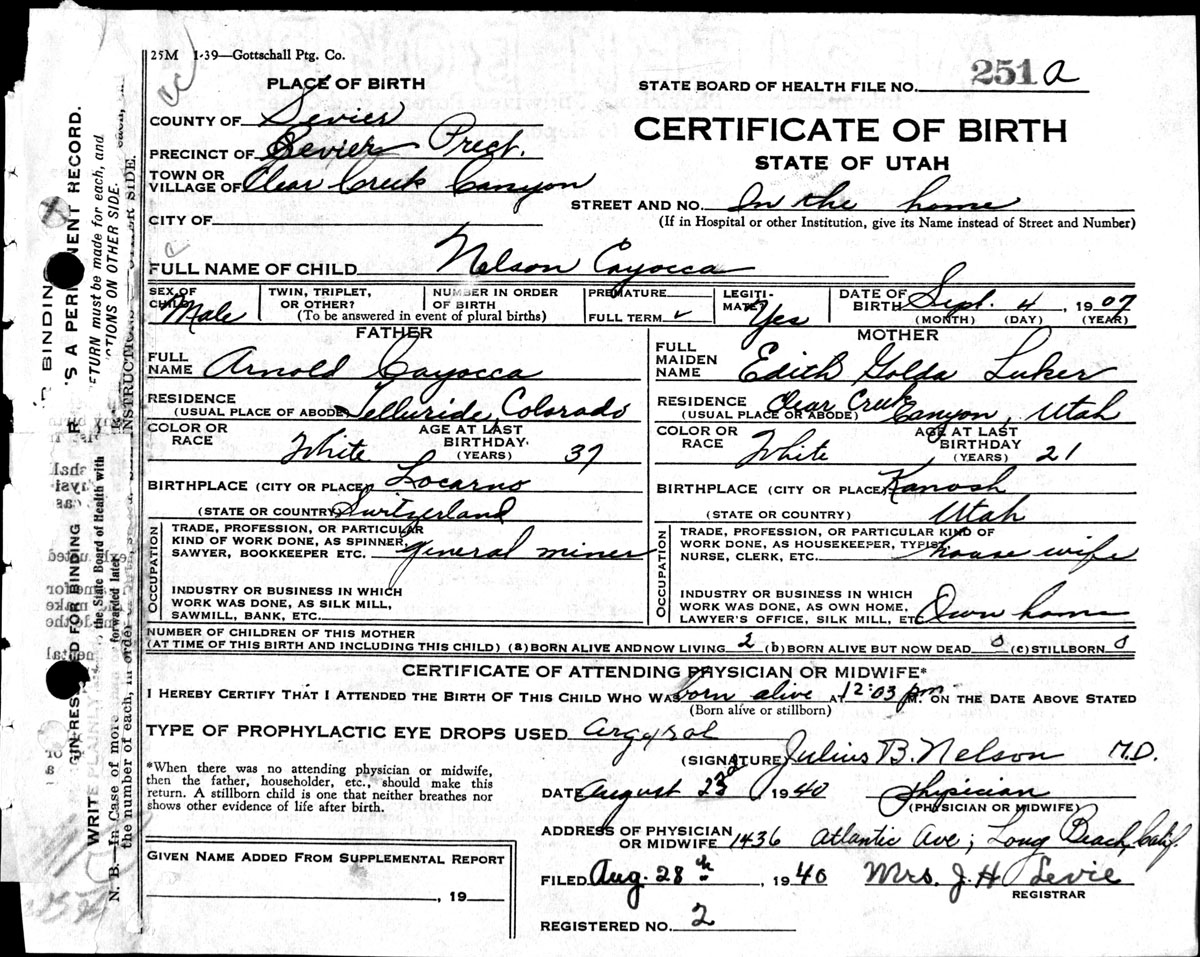 25M 1-39—Gottschall Ptg. Co.
PLACE OF BIRTH
STATE BOARD OF HEALTH FILE NO. 251 a
COUNTY OF Sevier
CERTIFICATE OF BIRTH
PRECINCT OF Sevier Prect.
STATE OF UTAH
TOWN OR VILLAGE OF Clear Creek Canyon
STREET AND NO. In the home
(If in Hospital or other Institution, give its Name instead of Street and Number)
CITY OF
FULL NAME OF CHILD Nelson Cayocca
SEX OF CHILD Male
TWIN, TRIPLET, OR OTHER?
NUMBER IN ORDER OF BIRTH
(To be answered in event of plural births)
PREMATURE
FULL TERM ✓
LEGITIMATE? Yes
DATE OF BIRTH Sept. 4, 1907
(MONTH) (DAY) (YEAR)
FATHER
FULL NAME Arnold Cayocca
RESIDENCE (USUAL PLACE OF ABODE) Telluride, Colorado
COLOR OR RACE White
AGE AT LAST BIRTHDAY (YEARS) 37
BIRTHPLACE (CITY OR PLACE) Locarno
(STATE OR COUNTRY) Switzerland
OCCUPATION
TRADE, PROFESSION, OR PARTICULAR
KIND OF WORK DONE, AS SPINNER,
SAWYER, BOOKKEEPER ETC. general miner
INDUSTRY OR BUSINESS IN WHICH
WORK WAS DONE, AS SILK MILL,
SAWMILL, BANK, ETC.
MOTHER
FULL MAIDEN NAME Edith Golda Luker
RESIDENCE (USUAL PLACE OR ABODE) Clear Creek Canyon, Utah
COLOR OR RACE White
AGE AT LAST BIRTHDAY (YEARS) 21
BIRTHPLACE (CITY OR PLACE) Kanosh
(STATE OR COUNTRY) Utah
OCCUPATION
TRADE, PROFESSION, OR PARTICULAR KIND OF
WORK DONE, AS HOUSEKEEPER, TYPIST
NURSE, CLERK, ETC. house wife
INDUSTRY OR BUSINESS IN WHICH
WORK WAS DONE, AS OWN HOME,
LAWYER'S OFFICE, SILK MILL, ETC. Own home
NUMBER OF CHILDREN OF THIS MOTHER
(AT TIME OF THIS BIRTH AND INCLUDING THIS CHILD) (a) BORN ALIVE AND NOW LIVING 2 (b) BORN ALIVE BUT NOW DEAD 0 (c) STILLBORN 0
CERTIFICATE OF ATTENDING PHYSICIAN OR MIDWIFE*
I HEREBY CERTIFY THAT I ATTENDED THE BIRTH OF THIS CHILD WHO WAS born alive AT 12:03 pm M. ON THE DATE ABOVE STATED
(Born alive or stillborn)
TYPE OF PROPHYLACTIC EYE DROPS USED argyrol
(SIGNATURE) Julius B. Nelson M.D.
*When there was no attending physician or midwife,
then the father, householder, etc., should make this
return. A stillborn child is one that neither breathes nor
shows other evidence of life after birth.
DATE August 23rd, 1940 Physician
(PHYSICIAN OR MIDWIFE)
ADDRESS OF PHYSICIAN OR MIDWIFE 1436 Atlantic Ave; Long Beach, Calif.
GIVEN NAME ADDED FROM SUPPLEMENTAL REPORT
, 19
FILED Aug. 28th, 1940 Mrs. J. H. Levie
REGISTRAR
REGISTERED NO. 2